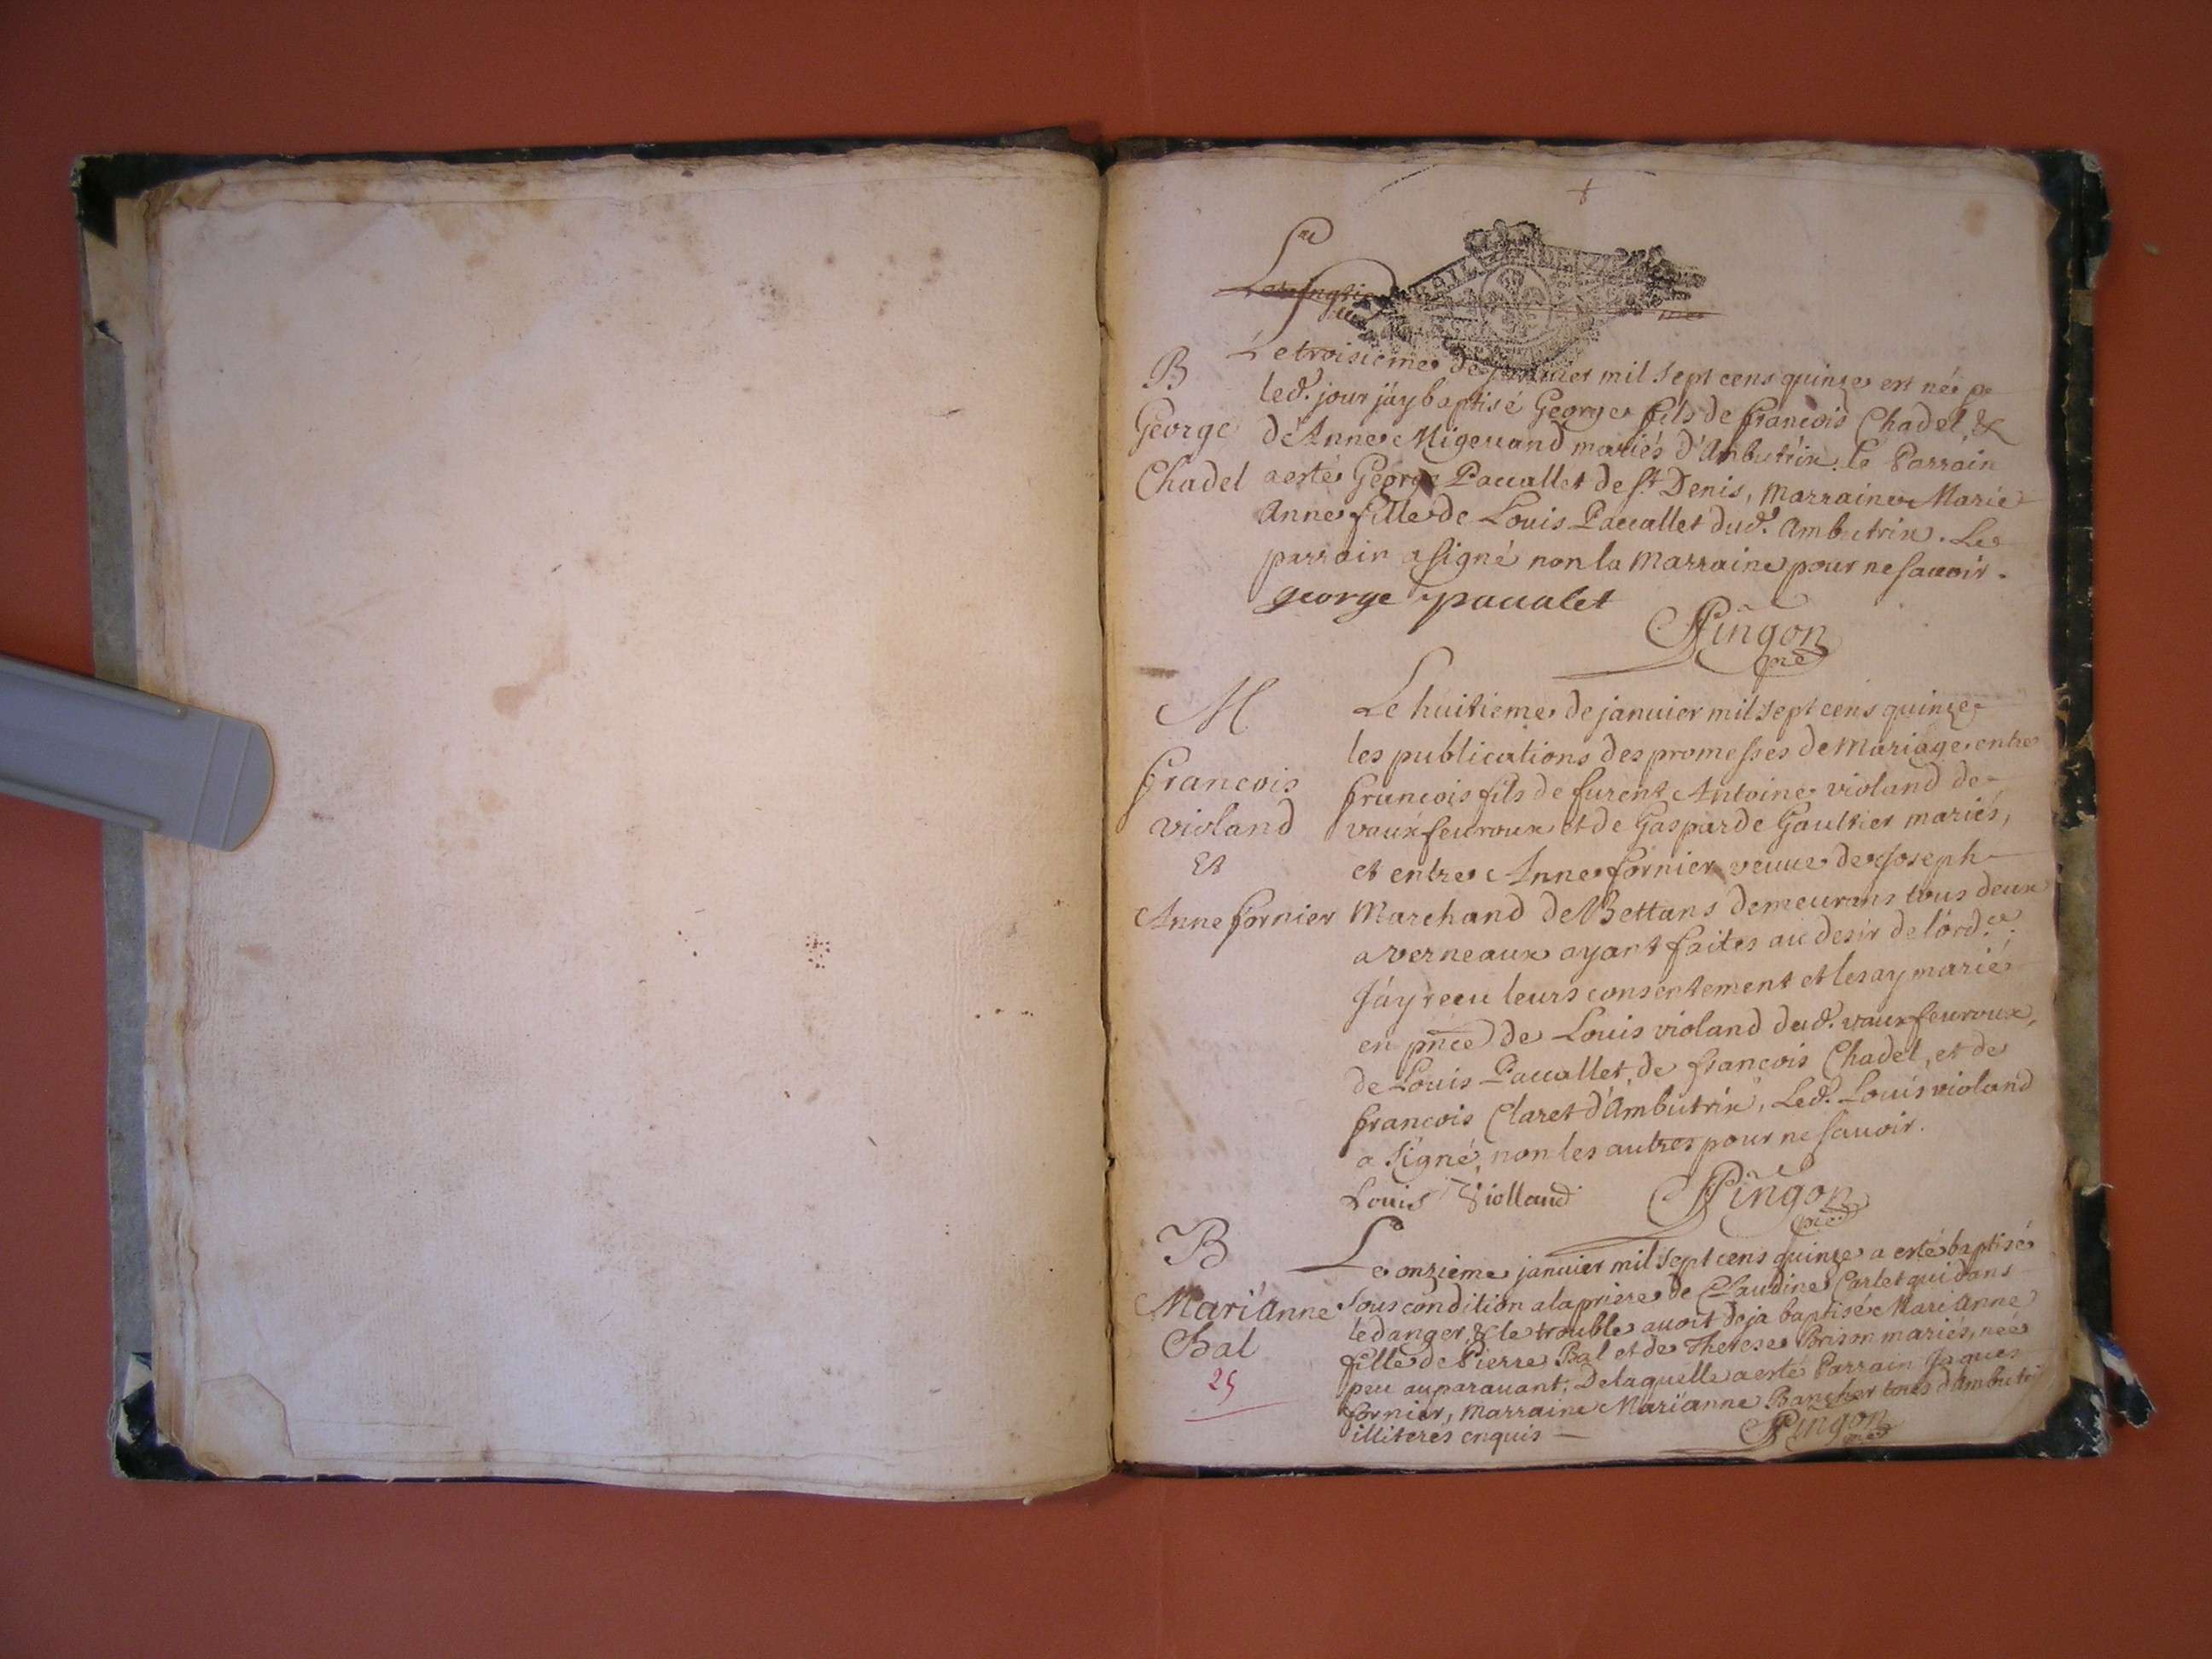 B
George
Chadel
Le troisieme de janvier mil sept cens quinze est né, &
led. jour j'ay baptisé George fils de françois Chadel, &
d'Anne Migerand mariés d'Ambutrix. le Parrain
a esté George Pauallet de st Denis, marraine Marie
Anne fille de Louis Pauallet dud. Ambutrix. Le
parrain a signé non la Marraine pour ne sauoir.
george paualet
Pingon
M
francois
violand
Et
Anne fornier
Le huitieme de januier mil sept cens quinze
les publications des promesses de Mariage entre
francois fils de furent Antoine violand de
vauxfeuroux et de Gasparde Gaultier mariés,
et entre Anne fornier veuue de Joseph
Marchand de Bettans demeurans tous deux
a verneaux ayant faites au desir de l'ord.ce
J'ay receu leurs consentement et les ay marié
en pnce de Louis violand dud. vauxfeuroux,
de Louis Pauallet, de françois Chadel, et de
francois Claret d'Ambutrix, Led. Louis violand
a signé, non les autres pour ne sauoir.
Louis Violland Pingon
B
Mari'anne
Bal
25
Le onzieme januier mil sept cens quinze a esté baptisé
sous condition a la priere de Claudine Carlet qui dans
le danger, & le trouble auoit deja baptisé Mari Anne
fille de Pierre Bal et de Therese Brison mariés, née
peu auparauant, De laquelle a esté Parrain Jaques
fornier, marraine Marianne tous d'Ambutri
illiterés enquis
Pingon